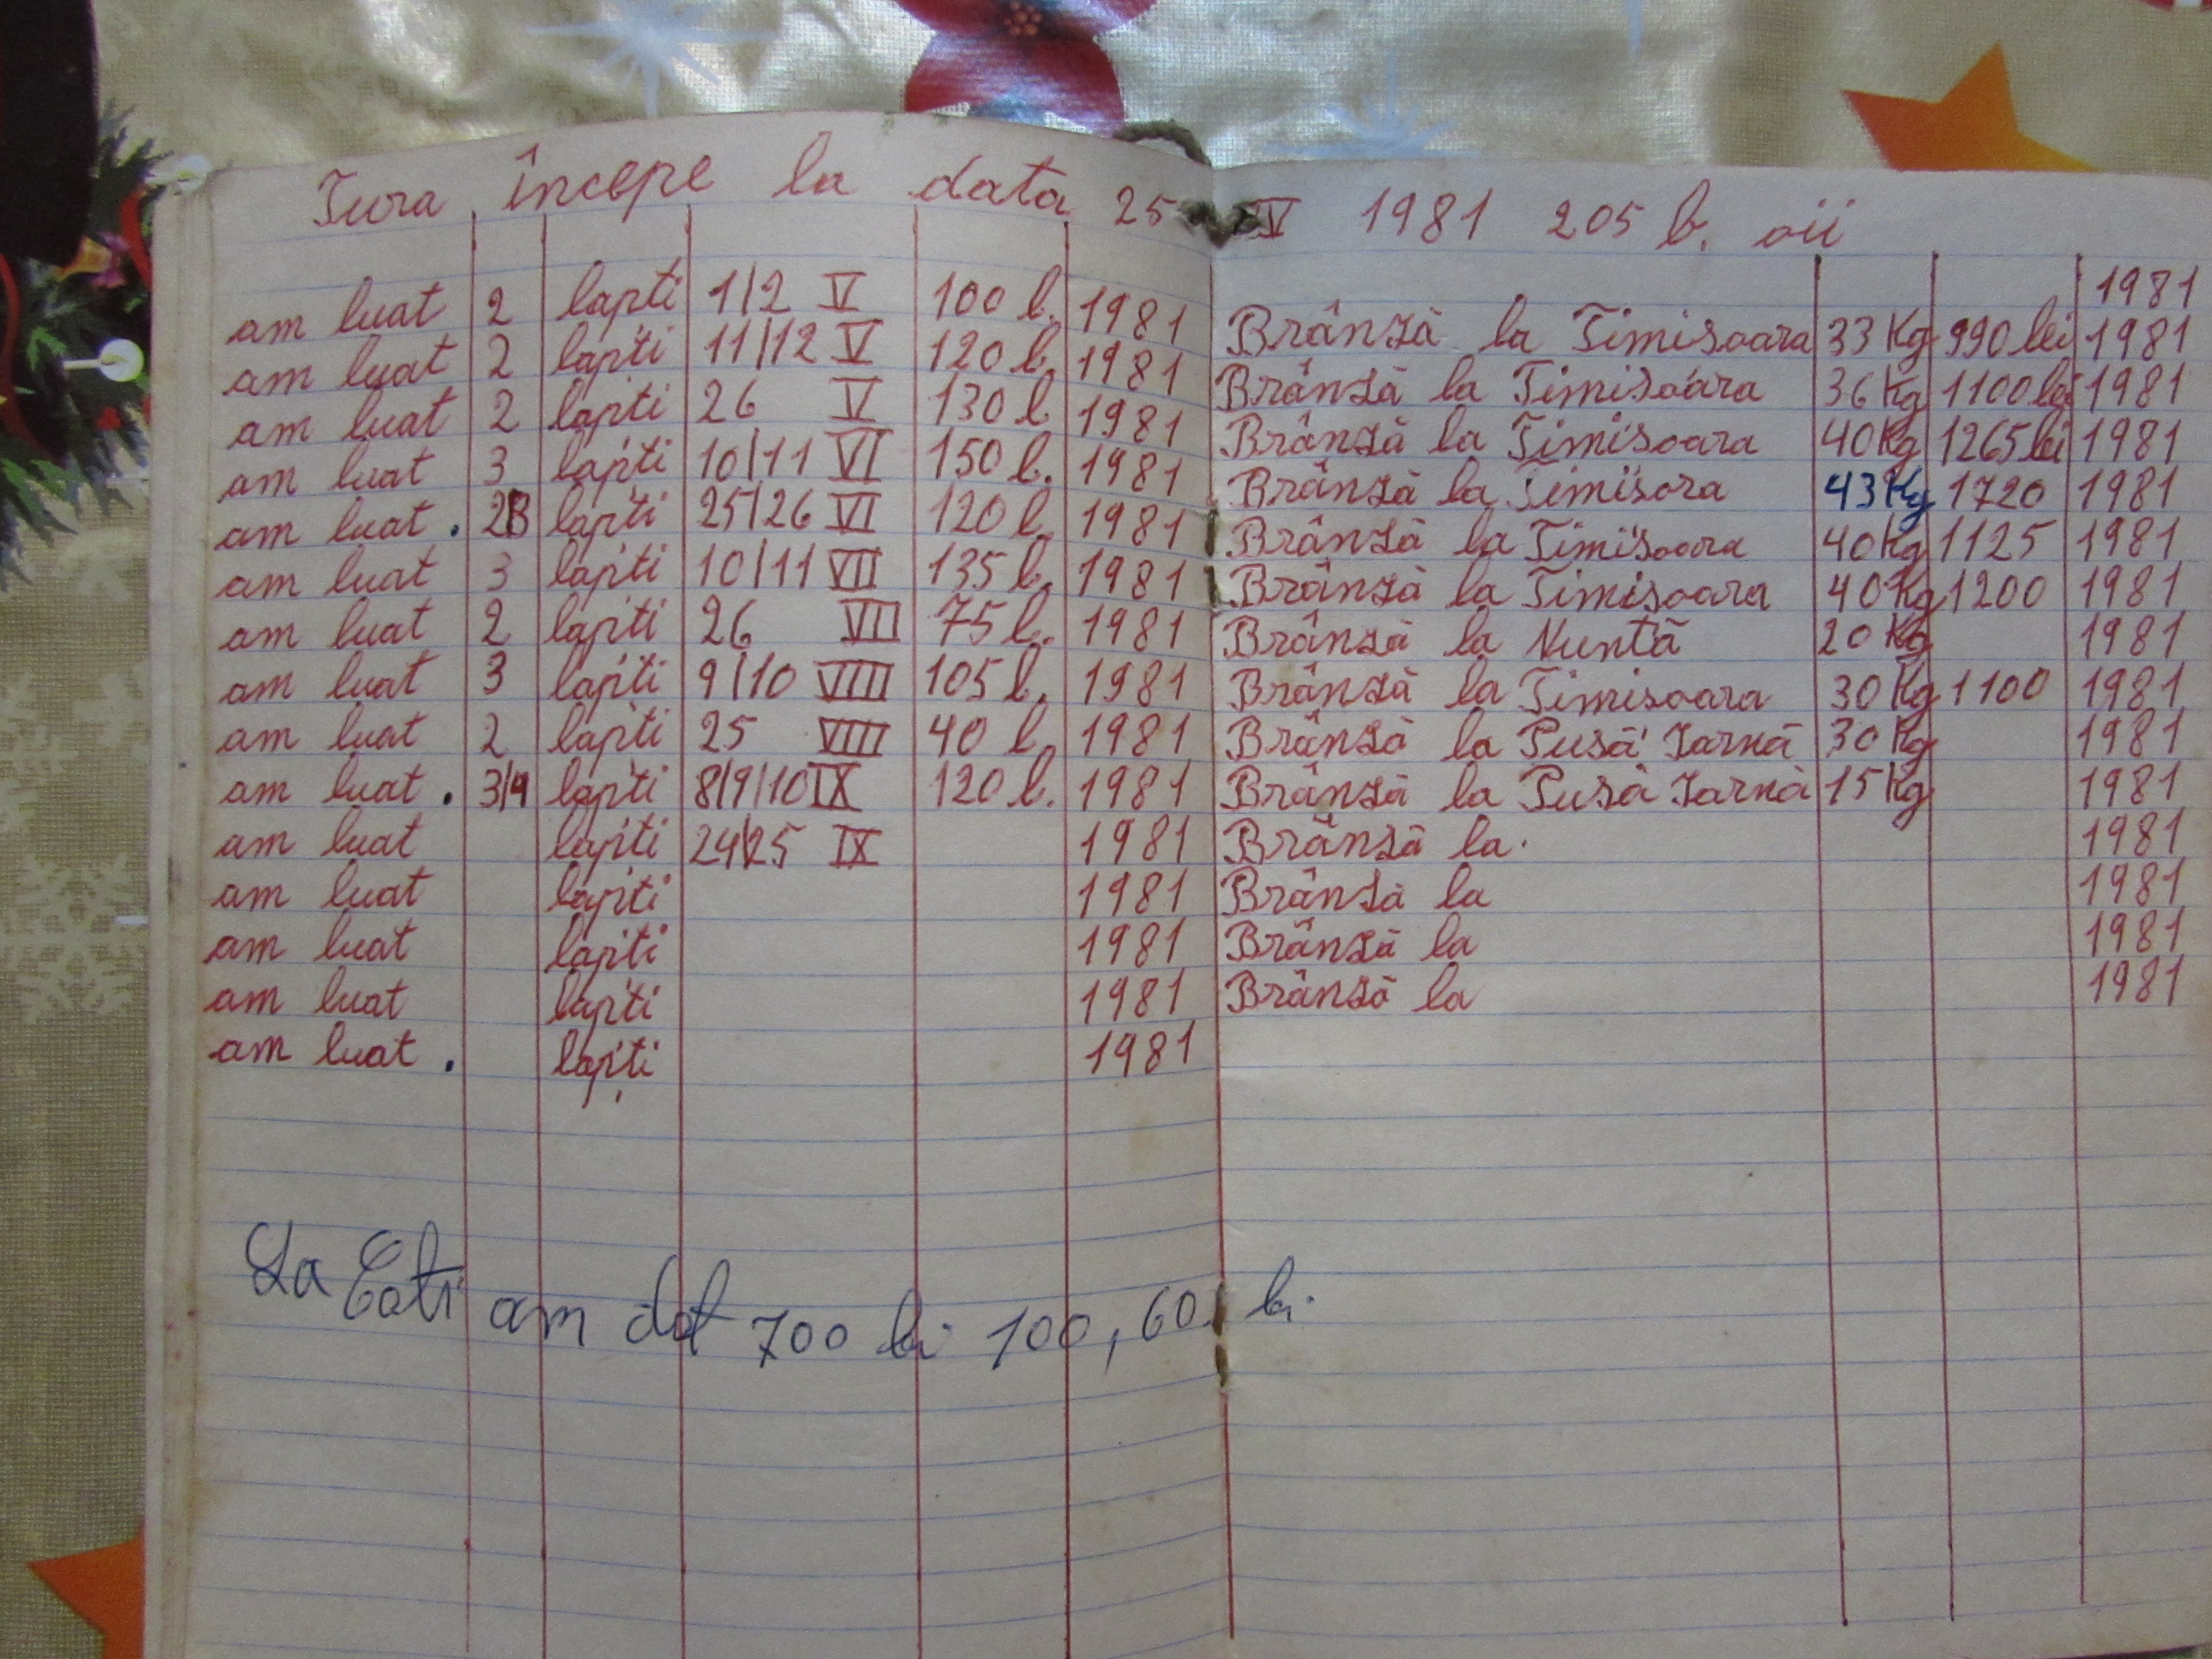 Tura începe la data 25 IV 1981 205 b. oii
1981
am luat 2 lapti 1/2 V 100 l. 1981 Brânză la Timisoara 33 Kg 990 lei 1981
am luat 2 lapti 11/12 V 120 l. 1981 Brânză la Timisoara 36 Kg 1100 lei 1981
am luat 2 lapti 26 V 130 l 1981 Brânză la Timisoara 40 Kg 1265 lei 1981
am luat 3 lapti 10/11 VI 150 l. 1981 Brânză la Timisora 43 Kg 1720 1981
am luat . 2/3 lapti 25/26 VI 120 l. 1981 Brânză la Timisoara 40 Kg 1125 1981
am luat 3 lapti 10/11 VII 135 l. 1981 Brânză la Timisoara 40 Kg 1200 1981
am luat 2 lapti 26 VII 75 l. 1981 Brânză la Nuntă 20 Kg 1981
am luat 3 lapti 9/10 VIII 105 l. 1981 Brânză la Timisoara 30 Kg 1100 1981
am luat 2 lapti 25 VIII 40 l. 1981 Brânză la Pusă Iarnă 30 Kg 1981
am luat . 3/4 lapti 8/9/10 IX 120 l. 1981 Brânză la Pusă Iarnă 15 Kg 1981
am luat lapti 24/25 IX 1981 Brânză la. 1981
am luat lapti 1981 Brânză la 1981
am luat lapti 1981 Brânză la 1981
am luat lapti 1981 Brânză la 1981
am luat . lapti 1981
La am dat 700 lei 100, 60 lei.